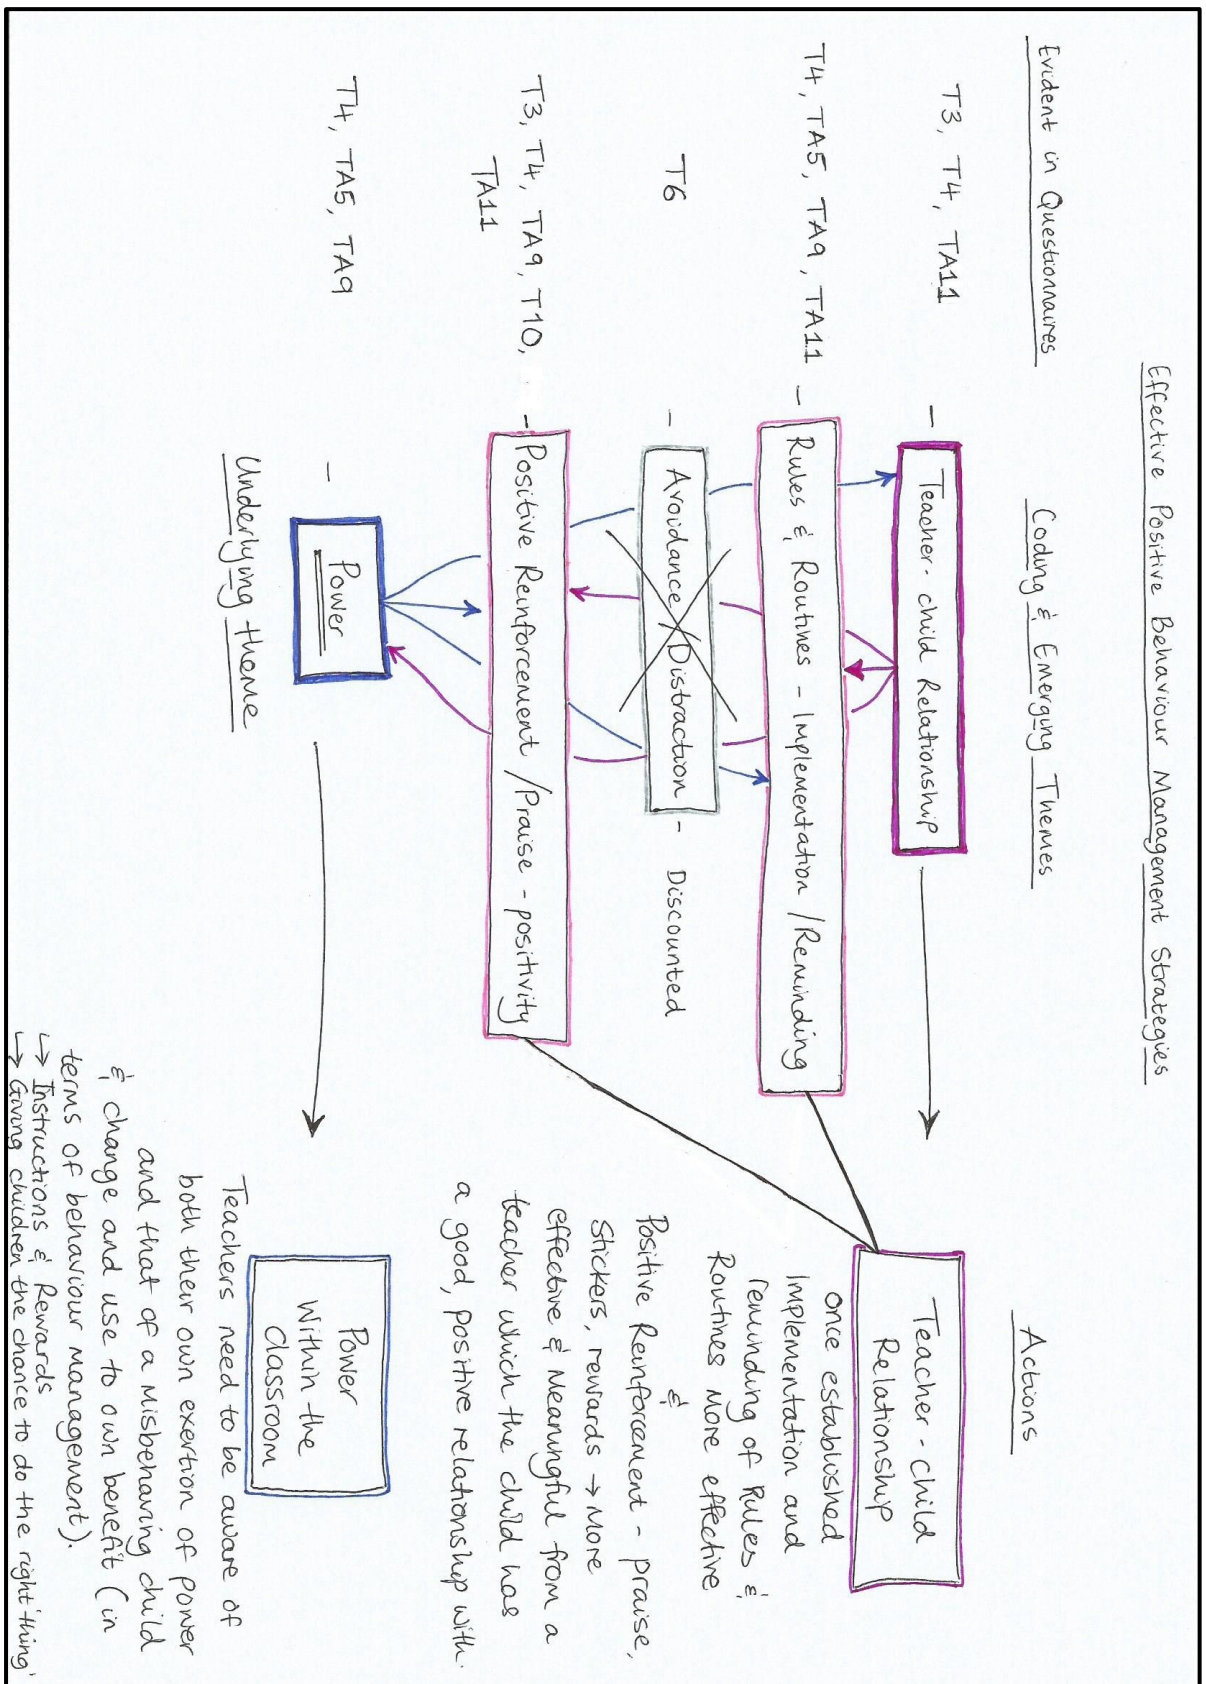 Effective Positive Behaviour Management Strategies
Evident in Questionnaires
Coding & Emerging Themes
Actions
T3, T4, TA11
- Teacher-child Relationship
T4, TA5, TA9, TA11
- Rules & Routines - Implementation / Reminding
T6
- Avoidance / Distraction - Discounted
T3, T4, TA9, T10,
TA11
- Positive Reinforcement / Praise - positivity
T4, TA5, TA9
- Power
Underlying theme
Teacher-child
Relationship
once established
Implementation and
reminding of Rules &
Routines More effective
&
Positive Reinforcement - praise,
Stickers, rewards → More
effective & Meaningful from a
teacher which the child has
a good, positive relationship with.
Power
Within the
Classroom
Teachers need to be aware of
both their own exertion of power
and that of a misbehaving child
& change and use to own benefit (in
terms of behaviour management).
↳ Instructions & Rewards
↳ Giving children the chance to do the right 'thing'